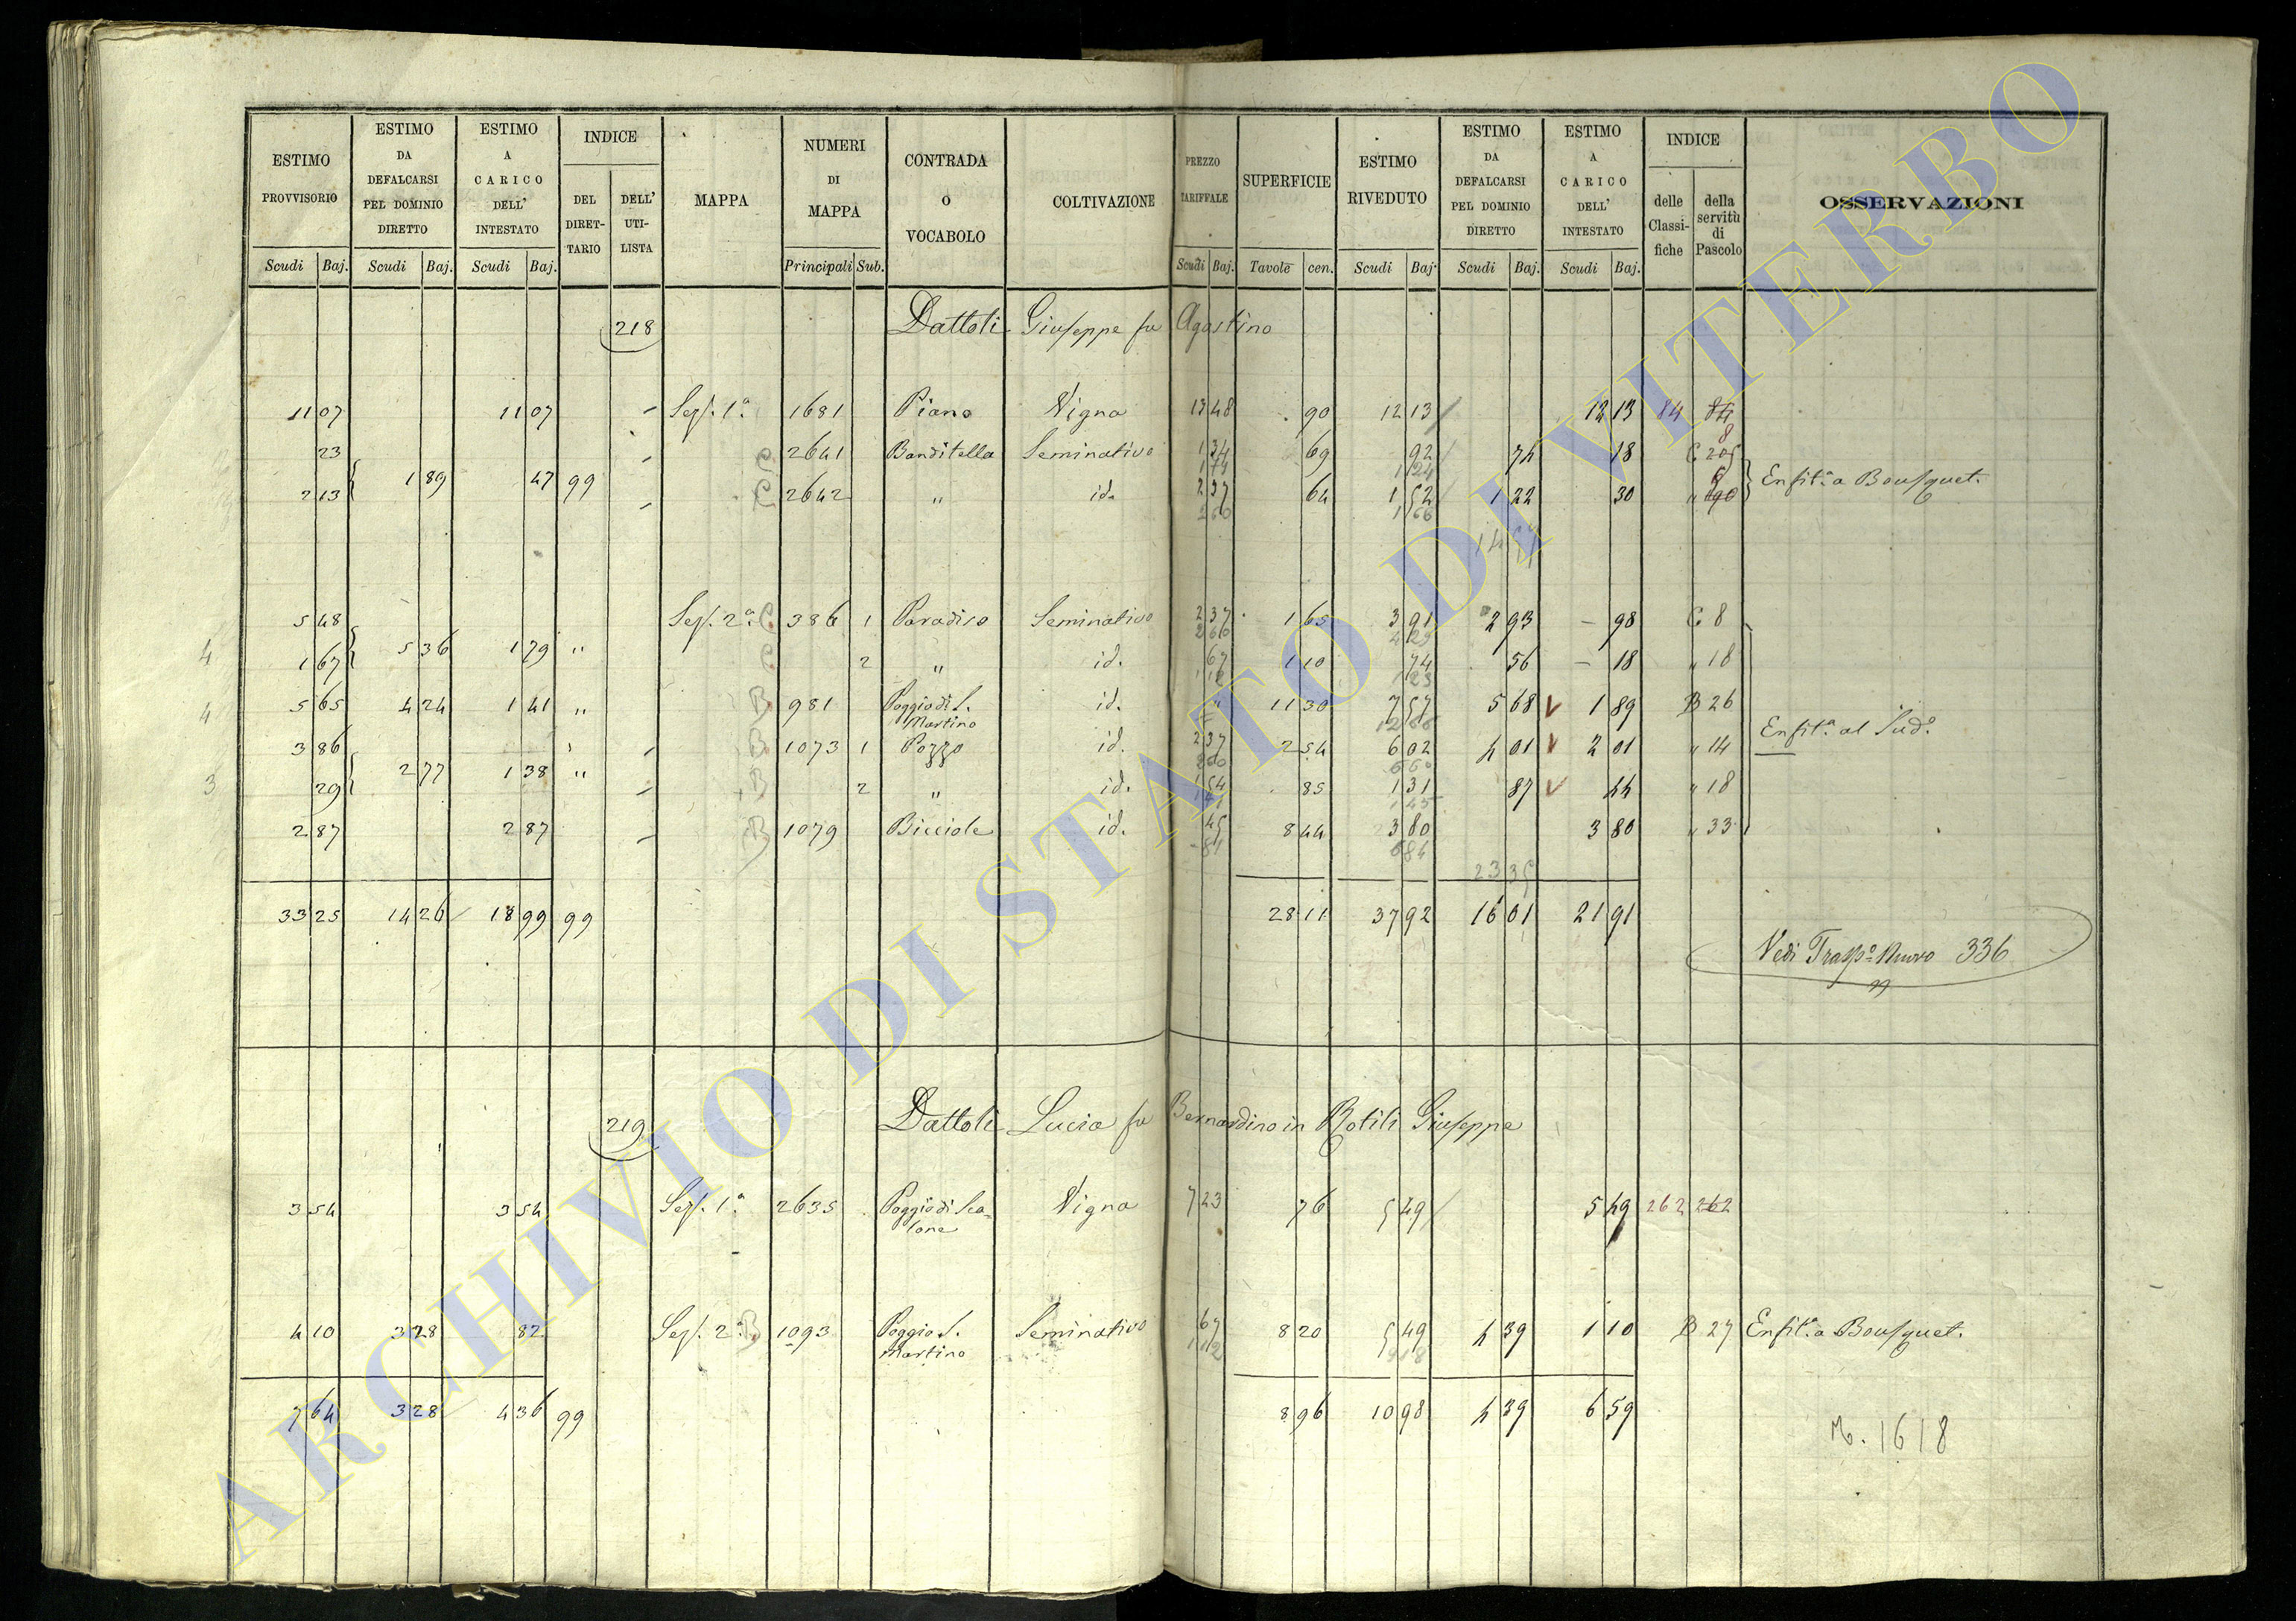 ESTIMO PROVVISORIO | ESTIMO DA DEFALCARSI PEL DOMINIO DIRETTO | ESTIMO A CARICO DELL' INTESTATO | INDICE | MAPPA | NUMERI DI MAPPA | CONTRADA O VOCABOLO | COLTIVAZIONE | PREZZO TARIFFALE | SUPERFICIE | ESTIMO RIVEDUTO | ESTIMO DA DEFALCARSI PEL DOMINIO DIRETTO | ESTIMO A CARICO DELL' INTESTATO | INDICE | OSSERVAZIONI
DEL DIRET-TARIO | DELL' UTI-LISTA | delle Classi-fiche | della servitù di Pascolo
Scudi | Baj. | Scudi | Baj. | Scudi | Baj. | Principali | Sub. | Scudi | Baj. | Tavole | cen. | Scudi | Baj. | Scudi | Baj. | Scudi | Baj.
218 Dattoli Giuseppe fu Agostino
11 07 | 11 07 | Sez. 1a | 1681 | Piano | Vigna | 13 48 | 90 | 12 13 | 12 13 | 84 | 84
23 | C | 2641 | Banditella | Seminativo | 1 34 | 69 | 92 | 74 | 18 | C 205
1 74 | 1 24 | 8
1 89 | 47 | 99 | Enfit.a a Bousquet.
2 13 | C | 2642 | " | id. | 2 37 | 64 | 1 52 | 1 22 | 30 | "
2 60 | 1 66
5 48 | Sez. 2a C | 386 | 1 | Paradiso | Seminativo | 2 37 | 1 65 | 3 91 | 2 93 | 98 | C 8
2 60 | 4 29
4 | 5 36 | 1 79 | "
1 67 | C | 2 | " | id. | 67 | 1 10 | 74 | 56 | 18 | " 18
1 12 | 1 23
4 | 5 65 | 4 24 | 1 41 | " | B | 981 | Poggio di S. Martino | id. | " | 11 30 | 7 57 | 5 68 | 1 89 | B 26
12 66 | Enfit.a al Sud.o
3 86 | B | 1073 | 1 | Pozzo | id. | 2 37 | 2 54 | 6 02 | 4 01 | 2 01 | " 14
2 60 | 6 60
3 | 2 77 | 1 38 | "
29 | B | 2 | " | id. | 1 54 | 85 | 1 31 | 87 | 44 | " 18
1 45
2 87 | 2 87 | B | 1079 | Bicciole | id. | 45 | 8 44 | 3 80 | 3 80 | " 33
81 | 6 84
23 35
33 25 | 14 26 | 18 99 | 99 | 28 11 | 37 92 | 16 01 | 21 91
Vedi Trasp.o Nuovo 336
219 Dattoli Lucia fu Bernardino in Rotili Giuseppe
3 54 | 3 54 | Sez. 1a | 2635 | Poggio di Sca-lone | Vigna | 7 23 | 76 | 5 49 | 5 49 | 262 | 262
4 10 | 3 28 | 82 | Sez. 2a B | 1093 | Poggio S. Martino | Seminativo | 67 | 8 20 | 5 49 | 4 39 | 1 10 | B 27 | Enfit.a a Bousquet.
1 12
7 64 | 3 28 | 4 36 | 99 | 8 96 | 10 98 | 4 39 | 6 59
N. 1618
ARCHIVIO DI STATO DI VITERBO